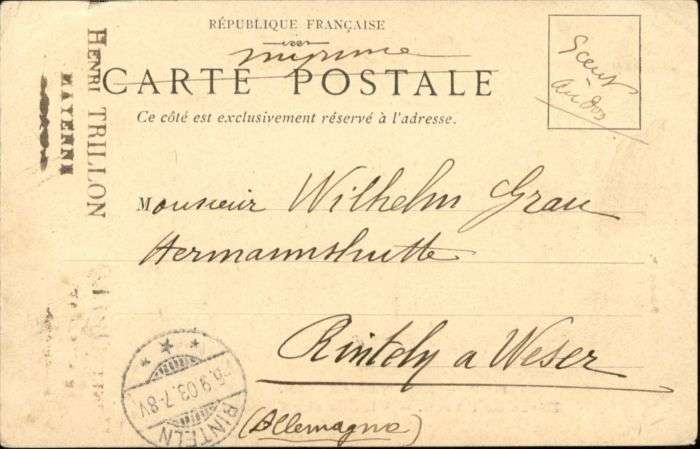 RÉPUBLIQUE FRANÇAISE
imprimé
CARTE POSTALE
Ce côté est exclusivement réservé à l'adresse.
au dos
Monsieur Wilhelm Grau
Hermannshutte
Rinteln a Weser
(Allemagne)
HENRI TRILLON
MAYENNE
9.03.7-8V
RINTELN